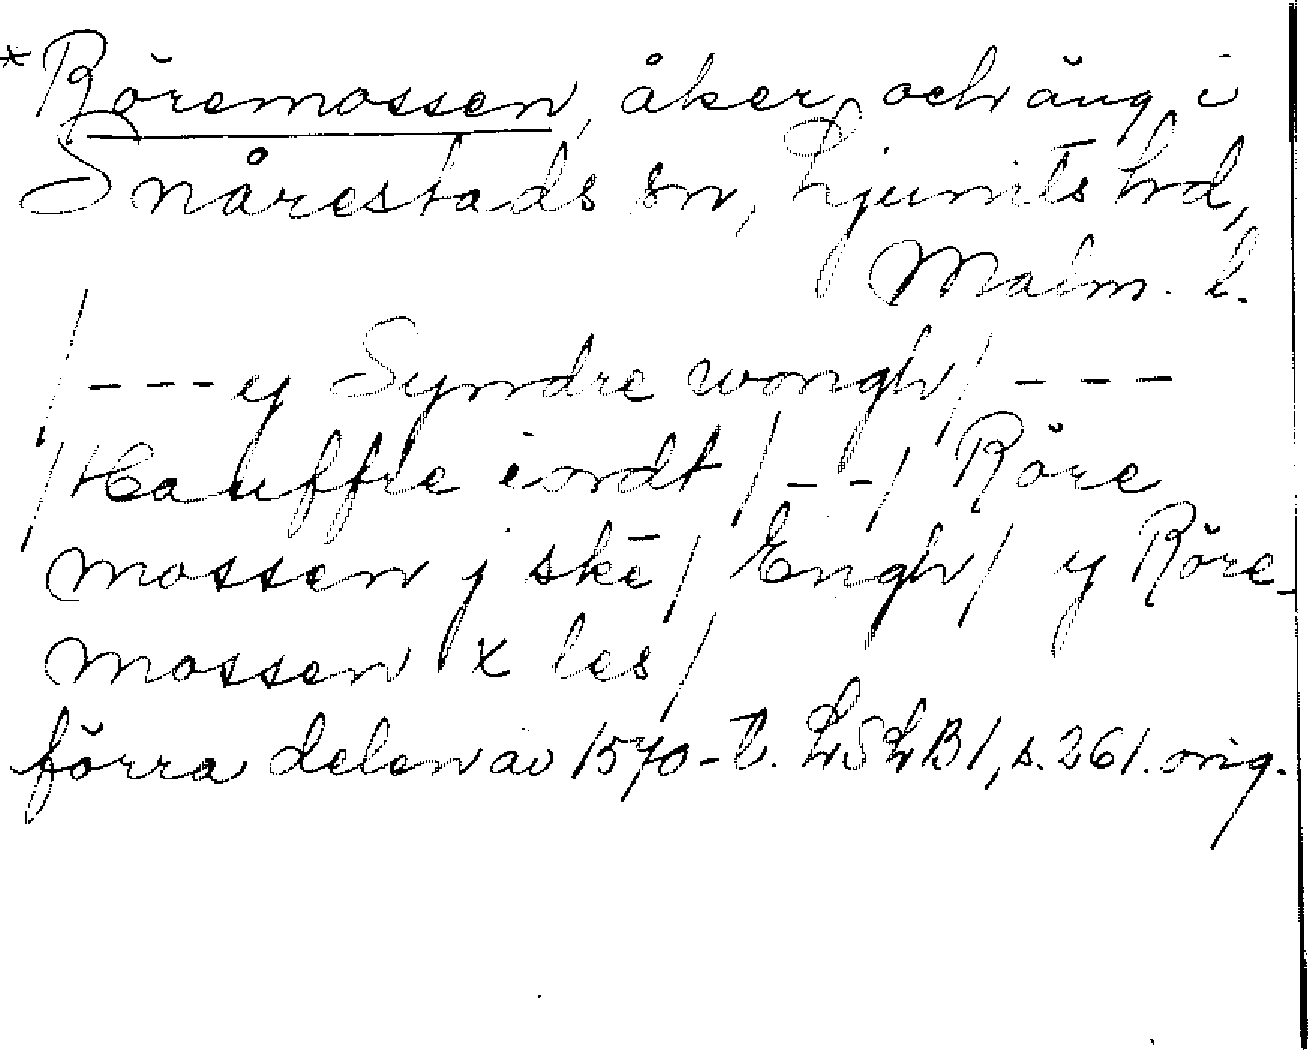 *Röremossen, åker och äng i
Snårestads sn, Ljunits hd,
Malm. l.
/ - - - y Syndre wongh / - - -
/ Hauffre iordt / - - / Röre
mossen j skē / Engh / y Röre-
mossen x les /
förra delen av 1570-t. LSLB1, s. 261. orig.